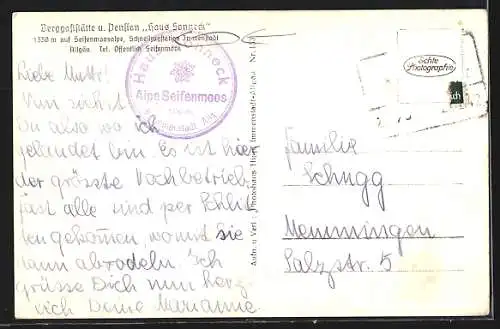 Berggaststätte u. Pension „Haus Sonneck"
1350 m auf Seifenmoosalpe, Schnellzugstation Immenstadt
Allgäu. Tel. Öffentlich Seifenmoos
Haus Sonneck
Alpe Seifenmoos
Immenstadt Allg.
Liebe Mutti!
Nun siehst
Du also wo ich
gelandet bin. Es ist hier
der grösste Hochbetrieb,
fast alle sind per Schlit
ten gekommen, womit sie
dann abrodeln. Ich
grüsse Dich nun herz-
lich Deine Marianne.
Echte
Photographie
Familie
Schugg
Memmingen
Salzstr. 5